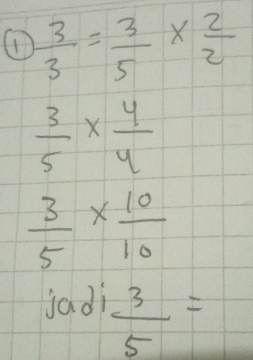 ① 3/3 = 3/5 × 2/2
3/5 × 4/4
3/5 × 10/10
jadi 3/5 =